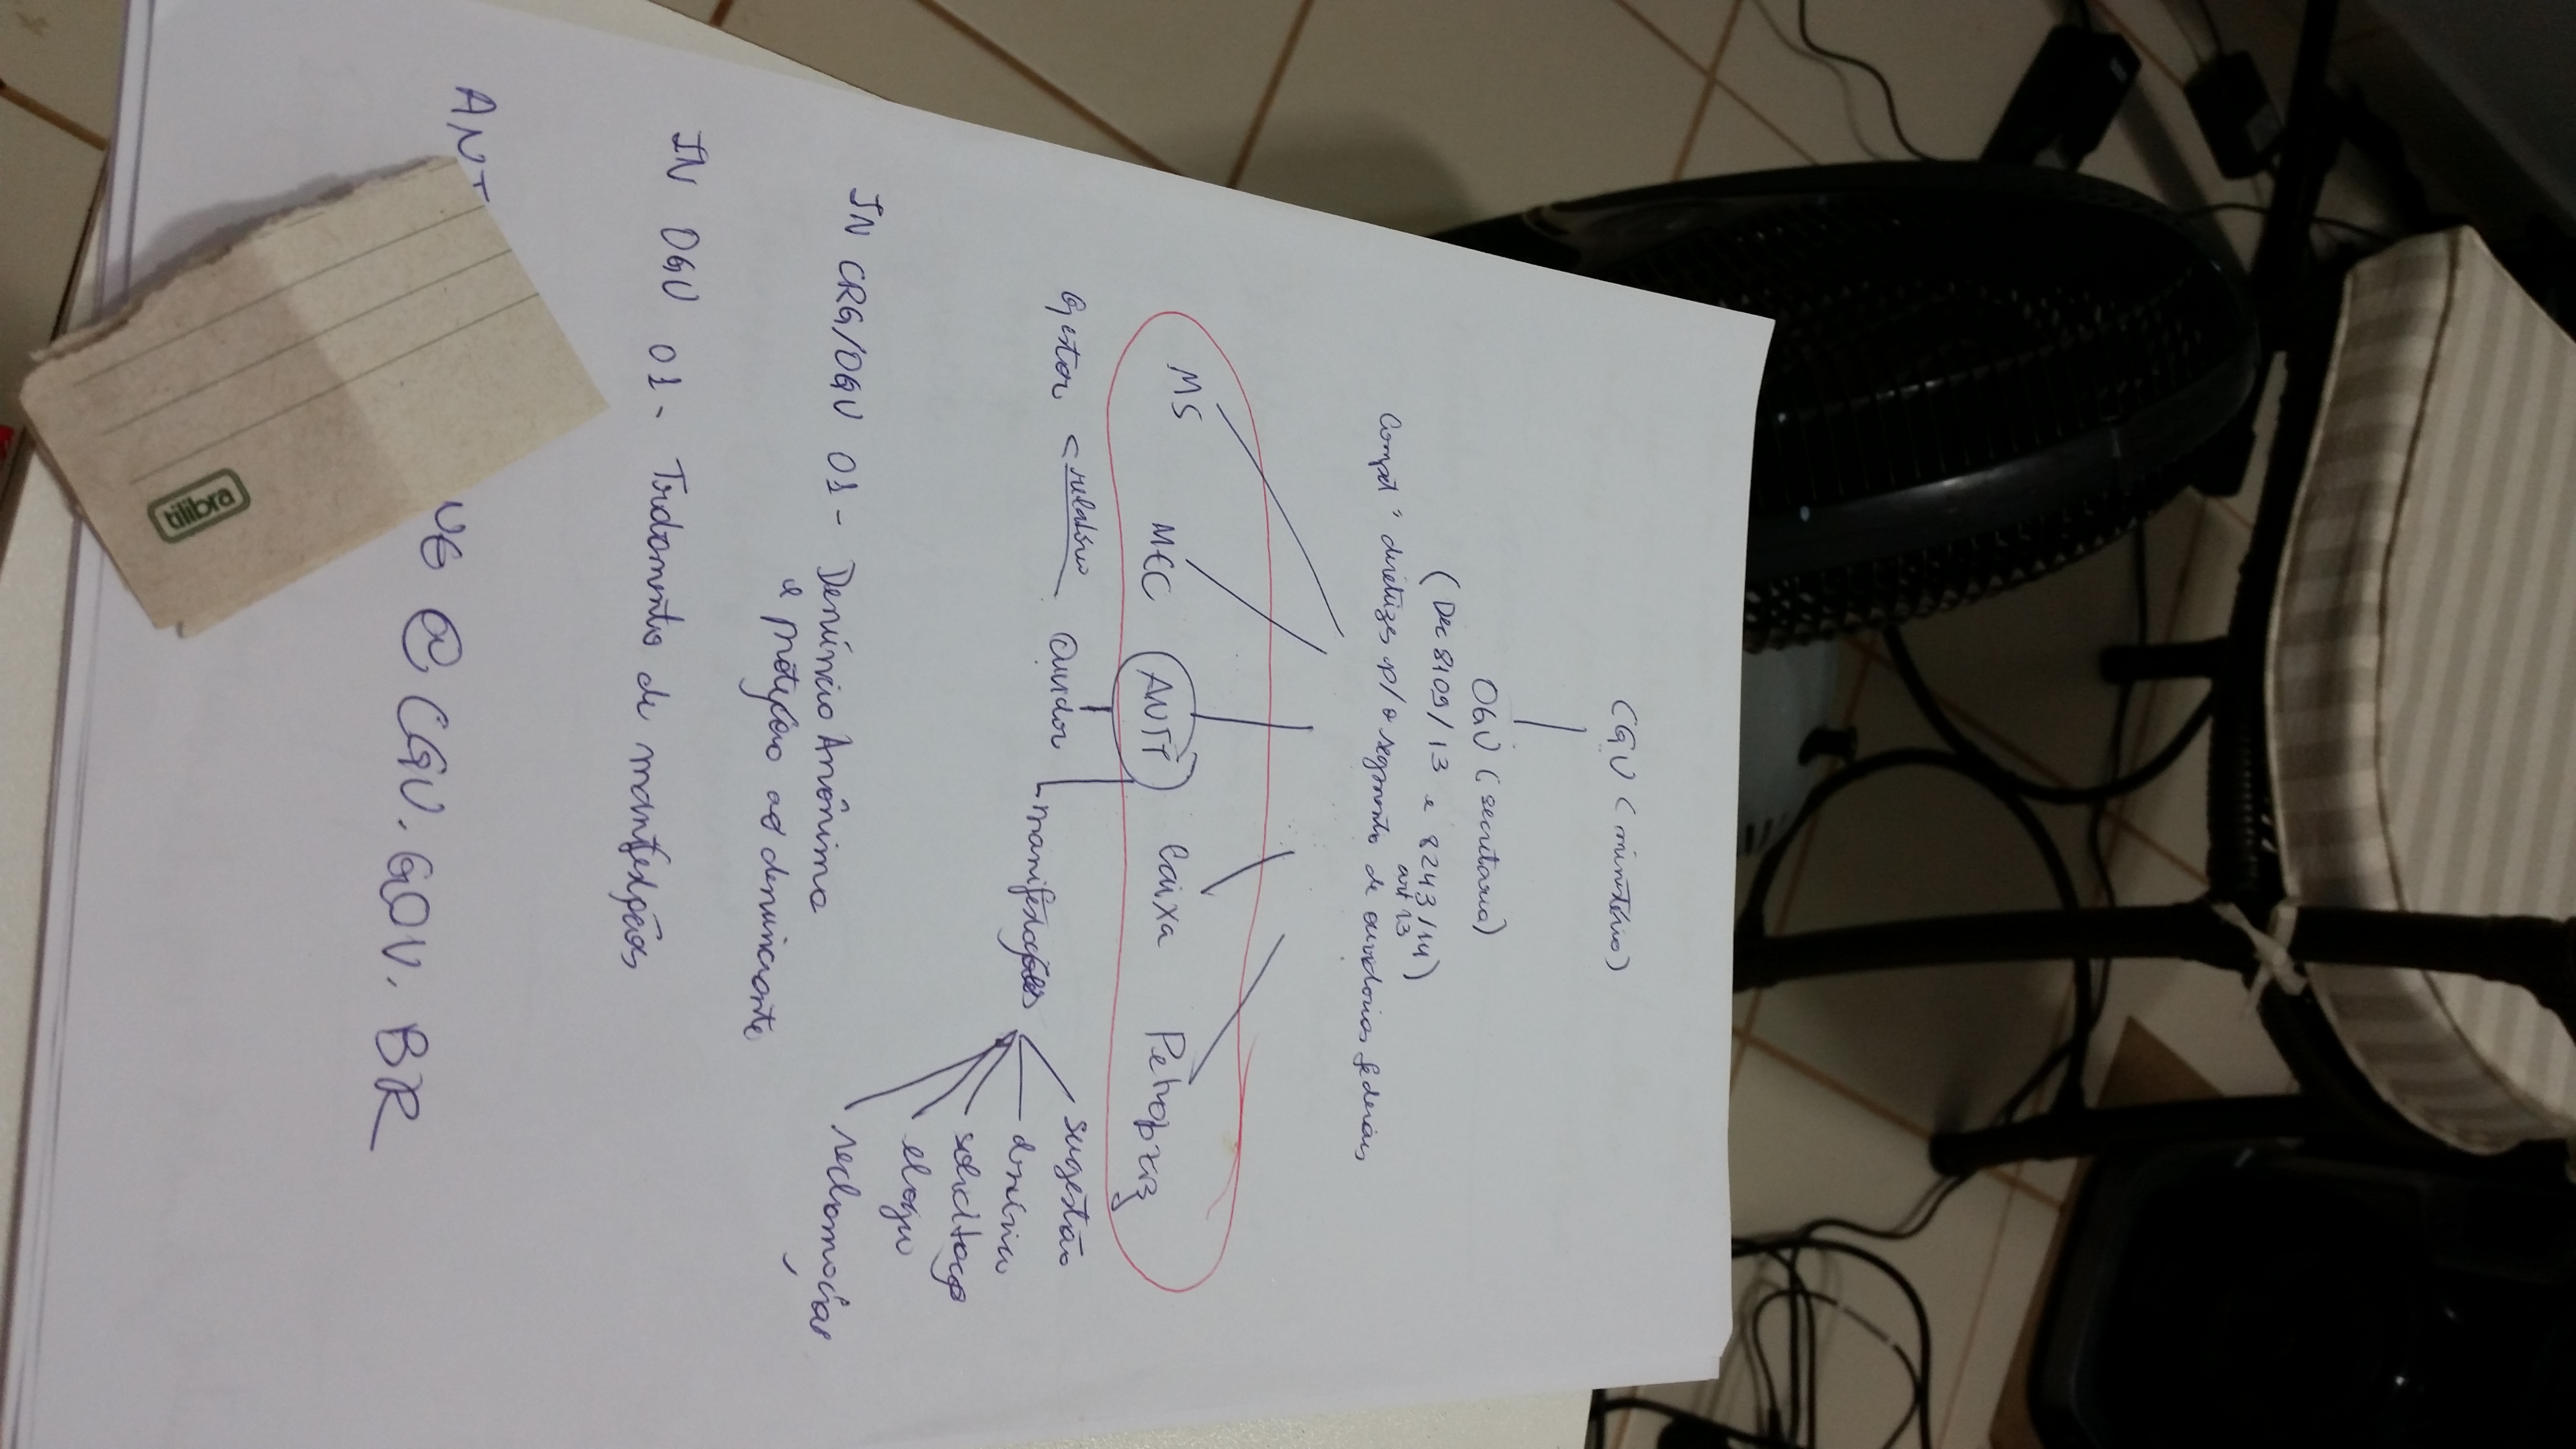 CGU (ministério)
OGU (secretaria)
(Dec 8109/13 e 8243/14)
art 13
Compet diretrizes p/ o segmento de ouvidorias federais
MS MEC ANTT Caixa Petrobras
Gestor relatório Ouvidor manifestações
sugestão
denúncia
solicitação
elogio
reclamação
IN CRG/OGU 01 - Denúncia Anônima
e proteção ao denunciante
IN OGU 01 - Tratamento de manifestações
ANT @CGU.GOV.BR
tilibra